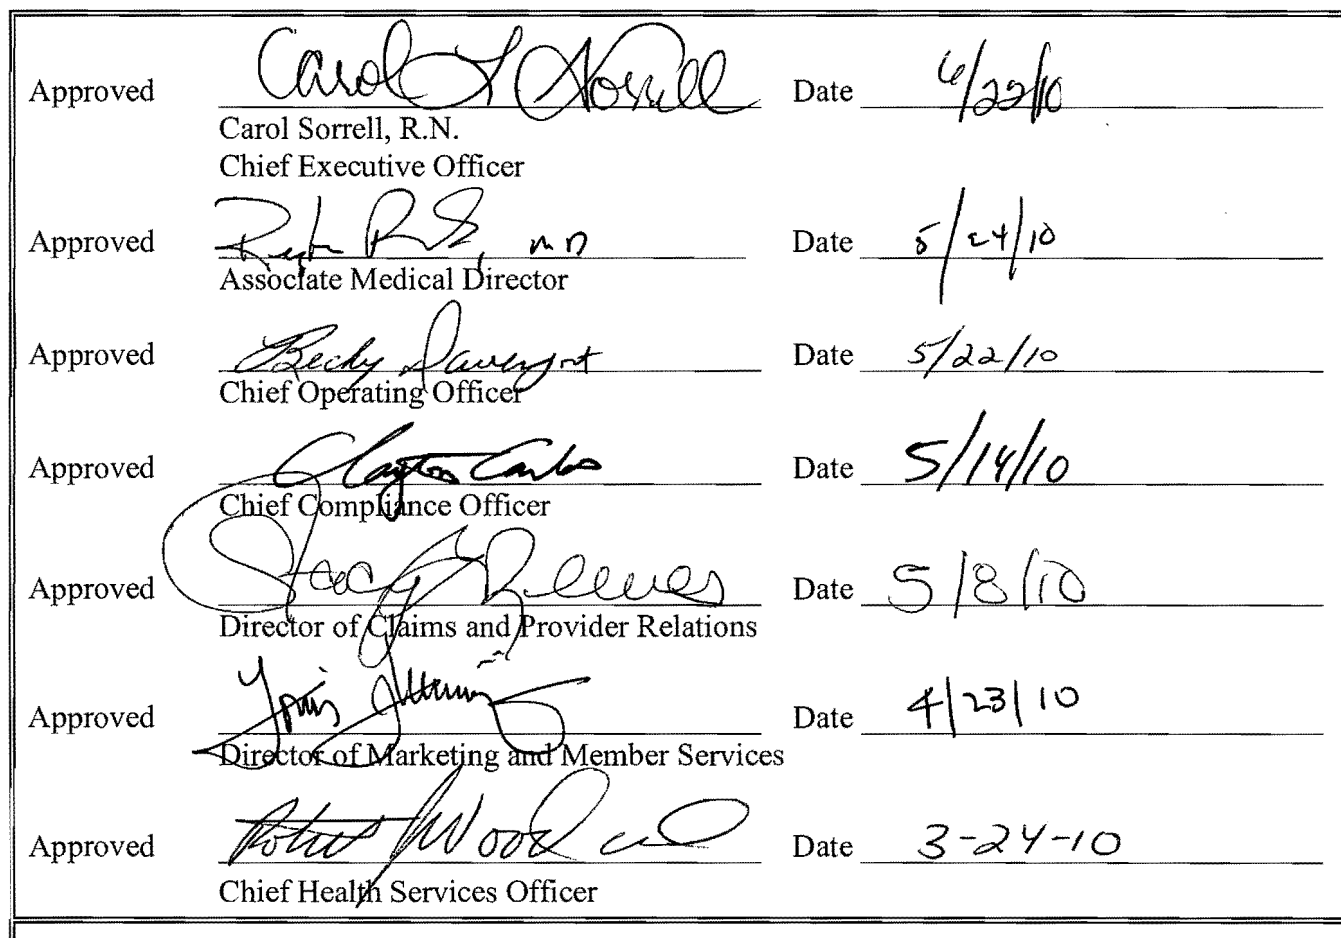 Approved Carol L Sorrell Date 6/22/10
Carol Sorrell, R.N.
Chief Executive Officer
Approved , MD Date 5/24/10
Associate Medical Director
Approved Becky Davenport Date 5/22/10
Chief Operating Officer
Approved Clayton Date 5/14/10
Chief Compliance Officer
Approved Stacy Reeves Date 5/8/10
Director of Claims and Provider Relations
Approved Date 4/23/10
Director of Marketing and Member Services
Approved Robert Date 3-24-10
Chief Health Services Officer